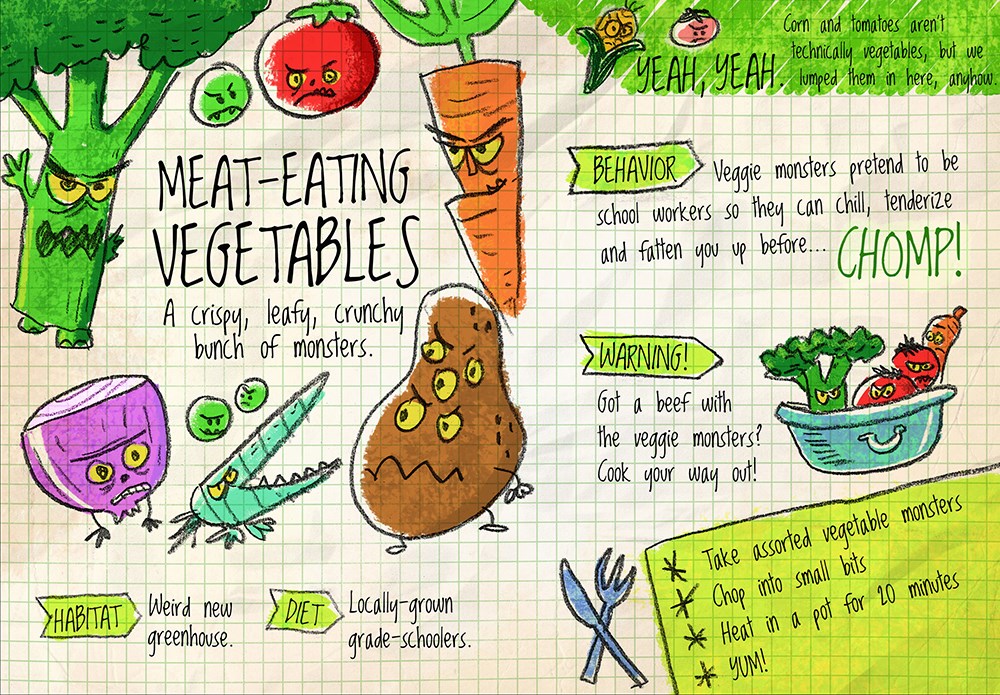 MEAT-EATING
VEGETABLES
A crispy, leafy, crunchy
bunch of monsters.
HABITAT
Weird new
greenhouse.
DIET
Locally-grown
grade-schoolers.
YEAH, YEAH.
Corn and tomatoes aren't
technically vegetables, but we
lumped them in here, anyhow.
BEHAVIOR Veggie monsters pretend to be
school workers so they can chill, tenderize
and fatten you up before... CHOMP!
WARNING!
Got a beef with
the veggie monsters?
Cook your way out!
* Take assorted vegetable monsters
* Chop into small bits
* Heat in a pot for 20 minutes
* YUM!